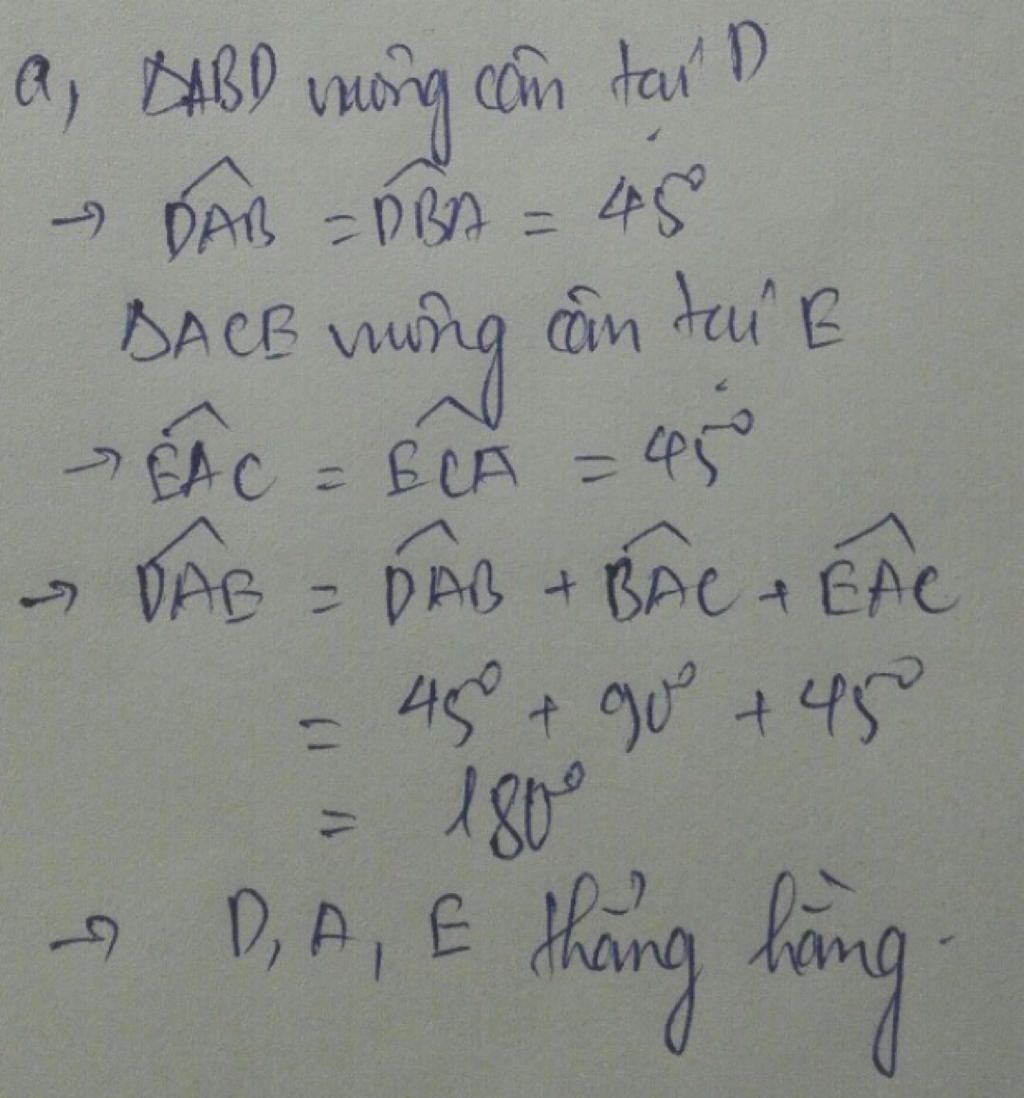 a, ΔABD vuông cân tại D
→ \widehat{DAB} = \widehat{DBA} = 45°
ΔACE vuông cân tại E
→ \widehat{EAC} = \widehat{ECA} = 45°
→ \widehat{DAE} = \widehat{DAB} + \widehat{BAC} + \widehat{EAC}
= 45° + 90° + 45°
= 180°
→ D, A, E thẳng hàng.